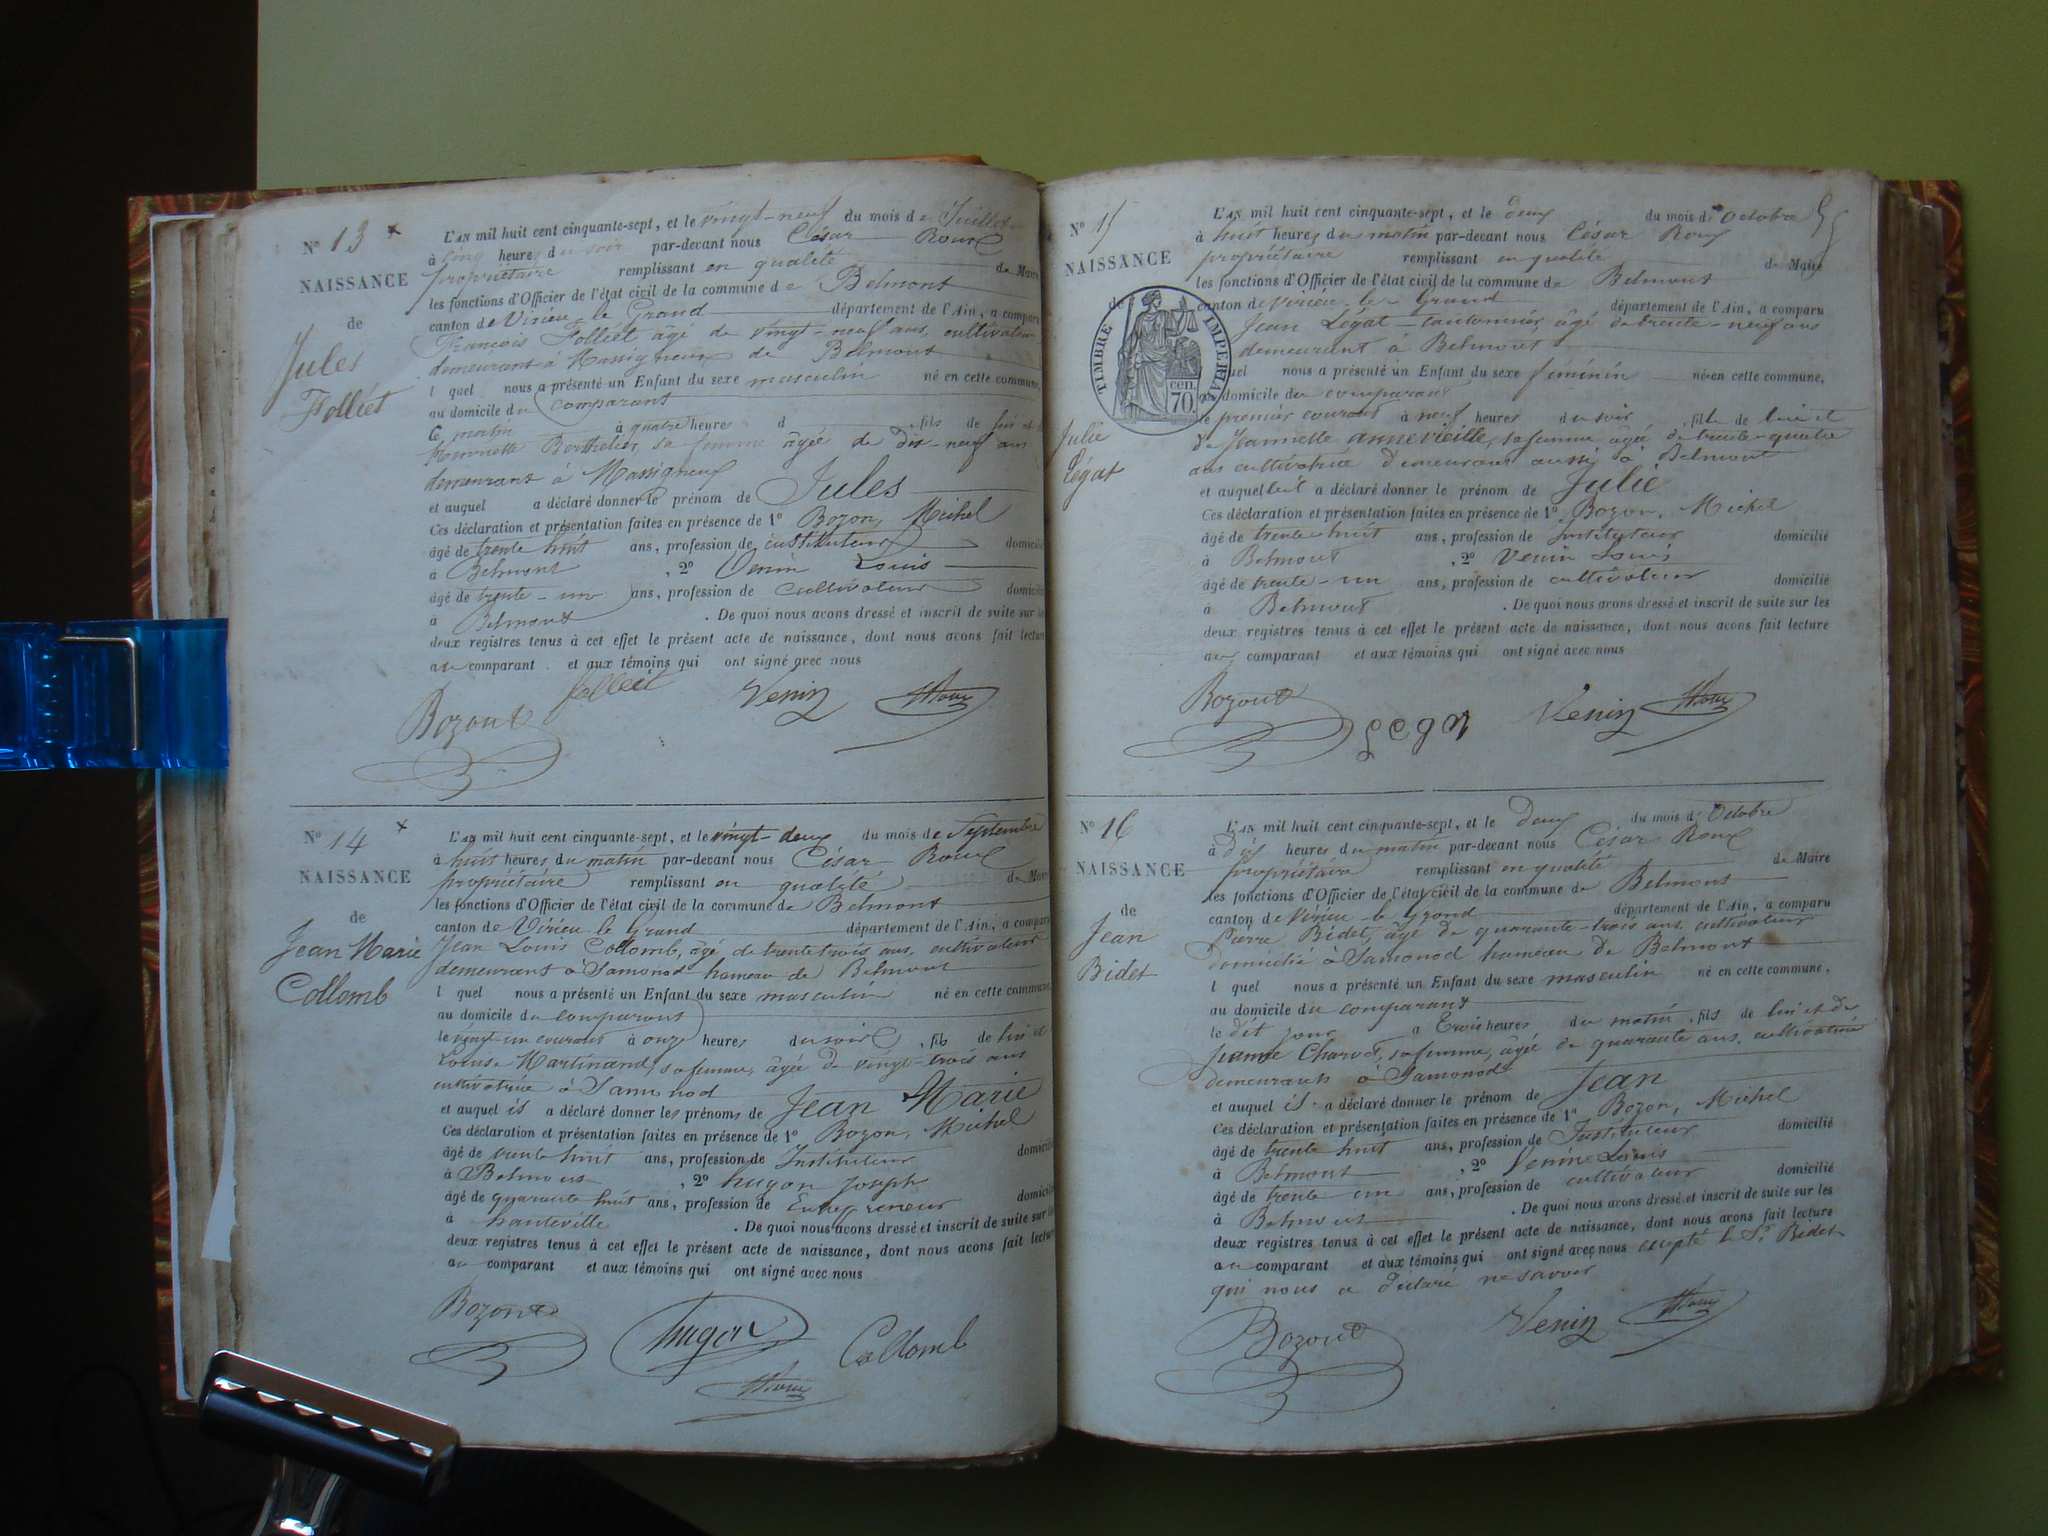 Nº 13
NAISSANCE
de
Jules
Folliet
L'AN mil huit cent cinquante-sept, et le vingt-neuf du mois de Juillet
à cinq heures du soir par-devant nous César Roux
propriétaire remplissant en qualité de Maire
les fonctions d'Officier de l'état civil de la commune de Belmont
canton de Virieu-le Grand département de l'Ain, a comparu
François Folliet âgé de vingt-neuf ans, cultivateur
demeurant à Massigneux de Belmont
l quel nous a présenté un Enfant du sexe masculin né en cette commune,
au domicile du comparant
Ce matin à quatre heures d , fils de lui et de
Berthelier, sa femme âgée de dix-neuf ans
demeurant à Massigneux
et auquel a déclaré donner le prénom de Jules
Ces déclaration et présentation faites en présence de 1º Bozon, Michel
âgé de trente huit ans, profession de instituteur domicilié
à Belmont , 2º Venin Louis
âgé de trente-un ans, profession de cultivateur domicilié
à Belmont . De quoi nous avons dressé et inscrit de suite sur les
deux registres tenus à cet effet le présent acte de naissance, dont nous avons fait lecture
au comparant et aux témoins qui ont signé avec nous
folliet Venin Roux
Bozon
Nº 14
NAISSANCE
de
Jean Marie
Collomb
L'AN mil huit cent cinquante-sept, et le vingt-deux du mois de Septembre
à huit heures du matin par-devant nous César Roux
propriétaire remplissant en qualité de Maire
les fonctions d'Officier de l'état civil de la commune de Belmont
canton de Virieu-le Grand département de l'Ain, a comparu
Jean Louis Collomb, âgé de trente trois ans, cultivateur
demeurant à Samonod hameau de Belmont
l quel nous a présenté un Enfant du sexe masculin né en cette commune,
au domicile du comparant
le vingt-un courant à onze heures du soir , fils de lui et
Martinand, sa femme, âgée de vingt-trois ans
cultivatrice à Samonod
et auquel il a déclaré donner les prénoms de Jean Marie
Ces déclaration et présentation faites en présence de 1º Bozon, Michel
âgé de trente huit ans, profession de Instituteur domicilié
à Belmont , 2º hugon Joseph
âgé de quarante huit ans, profession de Entrepreneur domicilié
à hauteville . De quoi nous avons dressé et inscrit de suite sur les
deux registres tenus à cet effet le présent acte de naissance, dont nous avons fait lecture
au comparant et aux témoins qui ont signé avec nous
Bozon hugon Collomb
Roux
Nº 15
NAISSANCE
de
TIMBRE IMPERIAL
70 cen.
Julie
Légat
L'AN mil huit cent cinquante-sept, et le deux du mois de Octobre
à huit heures du matin par-devant nous César Roux
propriétaire remplissant en qualité de Maire
les fonctions d'Officier de l'état civil de la commune de Belmont
canton de Virieu-le Grand département de l'Ain, a comparu
Jean Légat cantonnier âgé de trente-neuf ans
demeurant à Belmont
quel nous a présenté un Enfant du sexe féminin né en cette commune,
au domicile du comparant
le premier courant à neuf heures du soir , fille de lui et
de Jeannette annevieille, sa femme âgée de trente-quatre
ans cultivatrice demeurant aussi à Belmont
et auquel il a déclaré donner le prénom de Julie
Ces déclaration et présentation faites en présence de 1º Bozon, Michel
âgé de trente huit ans, profession de Instituteur domicilié
à Belmont , 2º Venin Louis
âgé de trente-un ans, profession de cultivateur domicilié
à Belmont . De quoi nous avons dressé et inscrit de suite sur les
deux registres tenus à cet effet le présent acte de naissance, dont nous avons fait lecture
au comparant et aux témoins qui ont signé avec nous
Bozon Legat Venin Roux
Nº 16
NAISSANCE
de
Jean
Bidet
L'AN mil huit cent cinquante-sept, et le Deux du mois de Octobre
à dix heures du matin par-devant nous César Roux
propriétaire remplissant en qualité de Maire
les fonctions d'Officier de l'état civil de la commune de Belmont
canton de Virieu-le Grand département de l'Ain, a comparu
Pierre Bidet, âgé de quarante-trois ans cultivateur
domicilié à Samonod hameau de Belmont
l quel nous a présenté un Enfant du sexe masculin né en cette commune,
au domicile du comparant
le dit jour à trois heures du matin , fils de lui et de
Jeanne Charvet, sa femme, âgée de quarante ans, cultivatrice
demeurants à Samonod
et auquel il a déclaré donner le prénom de Jean
Ces déclaration et présentation faites en présence de 1º Bozon, Michel
âgé de trente huit ans, profession de Instituteur domicilié
à Belmont , 2º Venin Louis
âgé de trente un ans, profession de cultivateur domicilié
à Belmont . De quoi nous avons dressé et inscrit de suite sur les
deux registres tenus à cet effet le présent acte de naissance, dont nous avons fait lecture
au comparant et aux témoins qui ont signé avec nous excepté le Sr Bidet
qui nous a déclaré ne savoir
Bozon Venin Roux